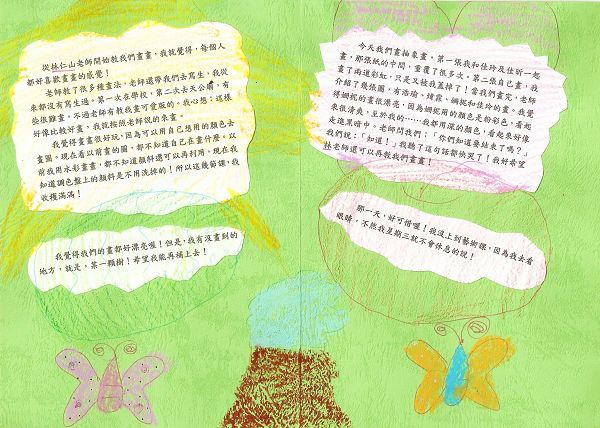 從林仁山老師開始教我們畫畫，我就覺得，每個人
都好喜歡畫畫的感覺！
老師教了很多種畫法，老師還帶我們去寫生，我從
來都沒有寫生過。第一次在學校，第二次去天公廟，有
些很難畫，不過老師有教我畫可愛版的。我心想：這樣
好像比較好畫，我就按照老師說的來畫。
我覺得畫畫很好玩，因為可以用自己想用的顏色去
畫圖。現在看以前畫的圖，都不知道自己在畫什麼。以
前我用水彩畫畫，都不知道顏料還可以再利用。現在我
知道調色盤上的顏料是不用洗掉的！所以這幾節課，我
收穫滿滿！
我覺得我們的畫都好漂亮喔！但是，我有沒畫到的
地方，就是，某一顆樹！希望我能再補上去！
今天我們畫抽象畫。第一張我和佳玲及仕昕一起
畫，那張紙的中間，重覆了很多次。第二張自己畫，我
畫了兩道彩虹，只是又被我蓋掉了！當我們畫完，老師
介紹了幾張圖，有浩瑜、煒霖、姵妮和佳玲的畫。我覺
得姵妮的畫很漂亮，因為姵妮用的顏色是粉彩色，看起
來很清爽，至於我的……我都用深的顏色，看起來好像
走進黑暗中。老師問我們：「你們知道要結束了嗎？」
我們說：「知道！」我聽了這句話都快哭了！我好希望
林老師還可以再教我們畫畫！
那一天，好可惜喔！我沒上到藝術課，因為我去看
眼睛，不然我星期三就不會休息的說！